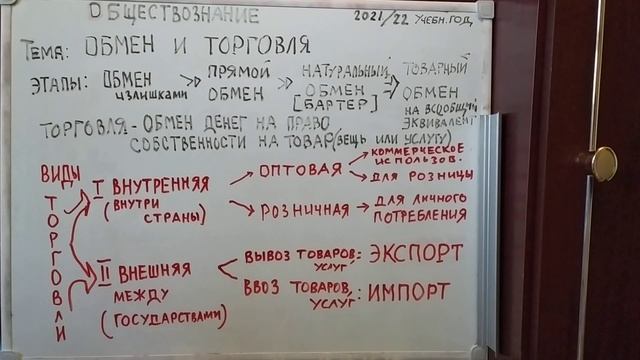 ОБЩЕСТВОЗНАНИЕ
2021/22 УЧЕБН. ГОД
ТЕМА: ОБМЕН И ТОРГОВЛЯ
ЭТАПЫ: ОБМЕН ИЗЛИШКАМИ >> ПРЯМОЙ ОБМЕН >> НАТУРАЛЬНЫЙ ОБМЕН [БАРТЕР] => ТОВАРНЫЙ ОБМЕН НА ВСЕОБЩИЙ ЭКВИВАЛЕНТ
ТОРГОВЛЯ - ОБМЕН ДЕНЕГ НА ПРАВО
СОБСТВЕННОСТИ НА ТОВАР (ВЕЩЬ ИЛИ УСЛУГУ)
ВИДЫ
ТОРГОВЛИ
I ВНУТРЕННЯЯ
(ВНУТРИ
СТРАНЫ)
→ ОПТОВАЯ
→ КОММЕРЧЕСКОЕ
ИСПОЛЬЗОВ.
→ ДЛЯ РОЗНИЦЫ
→ РОЗНИЧНАЯ → ДЛЯ ЛИЧНОГО
ПОТРЕБЛЕНИЯ
II ВНЕШНЯЯ
МЕЖДУ
(ГОСУДАРСТВАМИ)
ВЫВОЗ ТОВАРОВ, УСЛУГ: ЭКСПОРТ
ВВОЗ ТОВАРОВ, УСЛУГ: ИМПОРТ